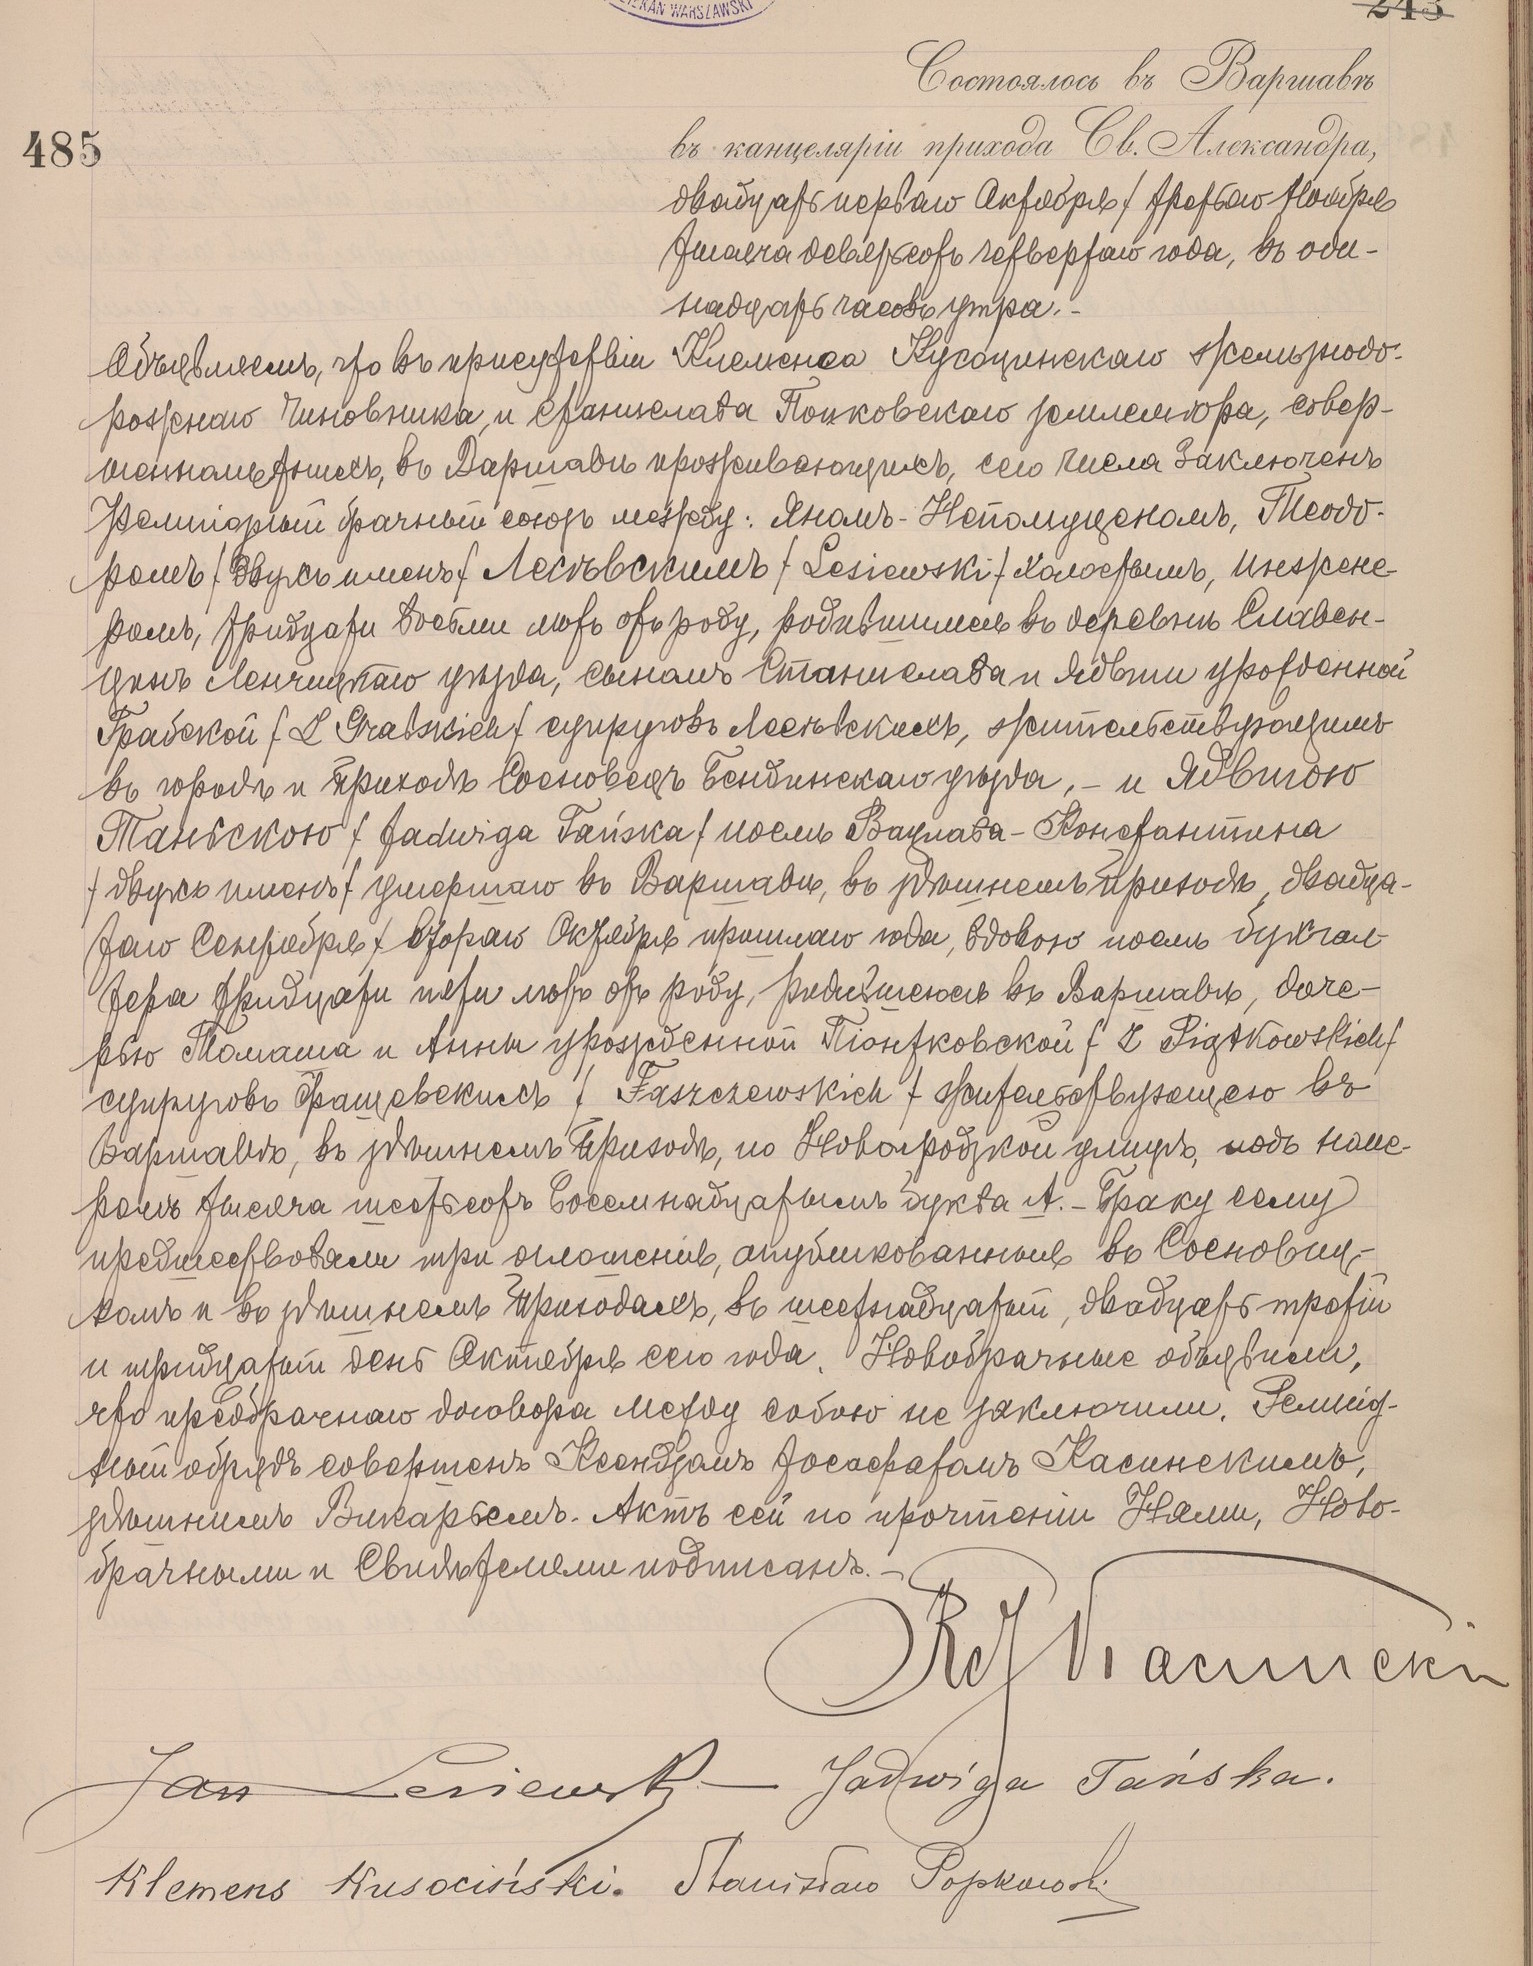 DZIEKAN WARSZAWSKI
243
Состоялось въ Варшавѣ
485
въ канцеляріи прихода Св. Александра,
двадцать перваго Октября / третьяго Ноября
тысяча девятьсотъ четвертаго года, въ оди-
надцать часовъ утра.-
Объявляемъ, что въ присутствіи Клеменса Кусоцинскаго желѣзнодо-
рожнаго чиновника, и Станислава Попковскаго землемѣра, совер-
шеннолѣтнихъ, въ Варшавѣ проживающихъ, сего числа заключенъ
религіозный брачный союзъ между: Яномъ-Непомуценомъ, Теодо-
ромъ / двухъ именъ / Лесѣвскимъ / Lesiewski / холостымъ, инжене-
ромъ, тридцати восьми лѣтъ отъ роду, родившимся въ деревнѣ Славен-
цинѣ Ленчицкаго уѣзда, сыномъ Станислава и Ядвиги урожденной
Грабской / Z Grabskich / супруговъ Лесѣвскихъ, жительствующимъ
въ городѣ и приходѣ Сосновецъ Бендинскаго уѣзда, - и Ядвигою
Таньскою / Jadwiga Tańska / послѣ Вацлава-Константина
/ двухъ именъ / умершаго въ Варшавѣ, въ здѣшнемъ приходѣ, двадца-
таго Сентября / втораго Октября прошлаго года, вдовою послѣ бухгал-
тера тридцати пяти лѣтъ отъ роду, родившеюся въ Варшавѣ, доче-
рью Томаша и Анны урожденной Піонтковской / Z Piątkowskich /
супруговъ Фащевскихъ / Faszczewskich / жительствующею въ
Варшавѣ, въ здѣшнемъ приходѣ, по Новогродзкой улицѣ, подъ номе-
ромъ тысяча шестьсотъ восемнадцатымъ буква А. - Браку сему
предшествовали три оглашенія, опубликованныя въ Сосновиц-
комъ и въ здѣшнемъ приходахъ, въ шестнадцатый, двадцать третій
и тридцатый день Октября сего года. Новобрачные объявили,
что предбрачнаго договора между собою не заключили. Религіоз-
ный обрядъ совершенъ Ксендзомъ Іосафатомъ Касинскимъ,
здѣшнимъ Викаріемъ. Актъ сей по прочтеніи Нами, Ново-
брачными и Свидѣтелями подписанъ. -
Касински
Jan Lesiewski Jadwiga Tańska.
Klemens Kusociński. Stanisław Popkowski